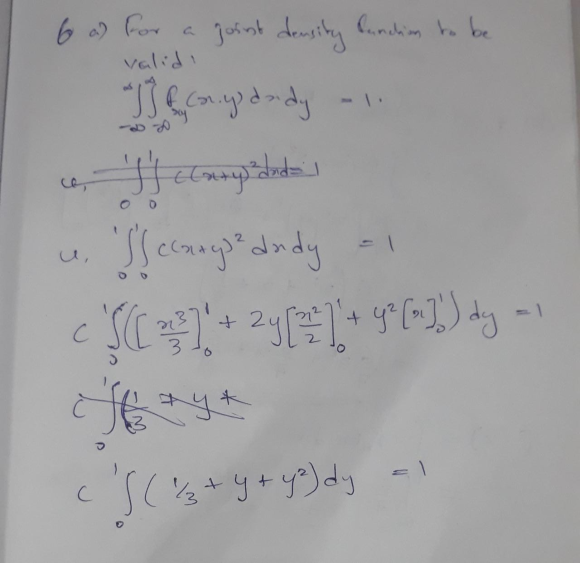 6 a) For a joint density function to be
valid:
∞∫-∞ ∞∫-∞ f_xy (x,y) dx dy = 1.
ie, 1∫0 1∫0 c(x+y)² dxd= 1
ie, 1∫0 1∫0 c(x+y)² dx dy = 1
c 1∫0 ([x³/3]¹₀ + 2y[x²/2]¹₀ + y²[x]¹₀) dy = 1
c 1∫0 (1/3 + y +
c 1∫0 (1/3 + y + y²) dy = 1